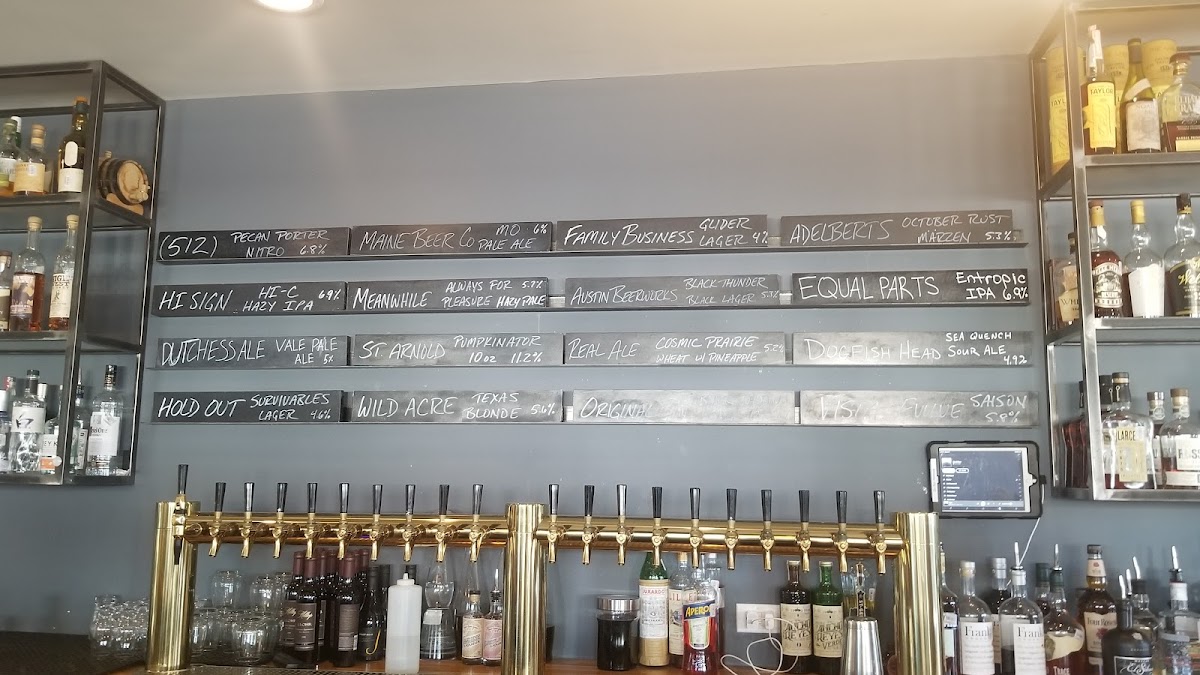 (512) PECAN PORTER
NITRO 6.8%
MAINE BEER CO MO 6%
PALE ALE
FAMILY BUSINESS GLIDER
LAGER 4%
ADELBERTS OCTOBER RUST
MARZEN 5.3%
HI SIGN HI-C 6.9%
HAZY IPA
MEANWHILE ALWAYS FOR 5.7%
PLEASURE HAZY PALE
AUSTIN BEERWORKS BLACK THUNDER
BLACK LAGER
EQUAL PARTS Entropic
IPA 6.9%
DUTCHESS ALE VALE PALE
ALE 5%
ST ARNOLD PUMPKINATOR
10oz 11.2%
REAL ALE COSMIC PRAIRIE
WHEAT W/ PINEAPPLE 5.2%
DOGFISH HEAD SEA QUENCH
SOUR ALE
4.9%
HOLD OUT SURVIVABLES
LAGER 4.6%
WILD ACRE TEXAS
BLONDE 5.6%
ORIGINAL
SAISON
5.8%
TAYLOR
LARCE
APERO
Frank
Frank